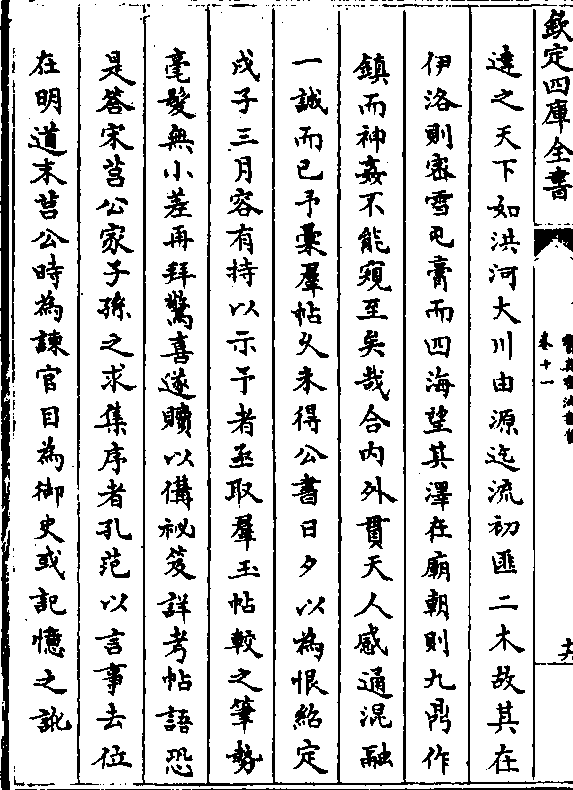 欽定四庫全書
卷十一
達之天下如洪河大川由源迄流初匪二木故其在
伊洛則密雪已膏而四海望其澤在廟朝則九鼎作
鎮而神姦不能窺至矣哉合内外貫天人感通混融
一誠而已予彚羣帖久未得公書日夕以為恨紹定
戊子三月客有持以示予者亟取羣玉帖較之筆勢
毫髮無小差再拜驚喜遂贖以備祕笈詳考帖語恐
是答宋莒公家子孫之求集序者孔范以言事去位
在明道末莒公時為諫官目為御史或記憶之訛